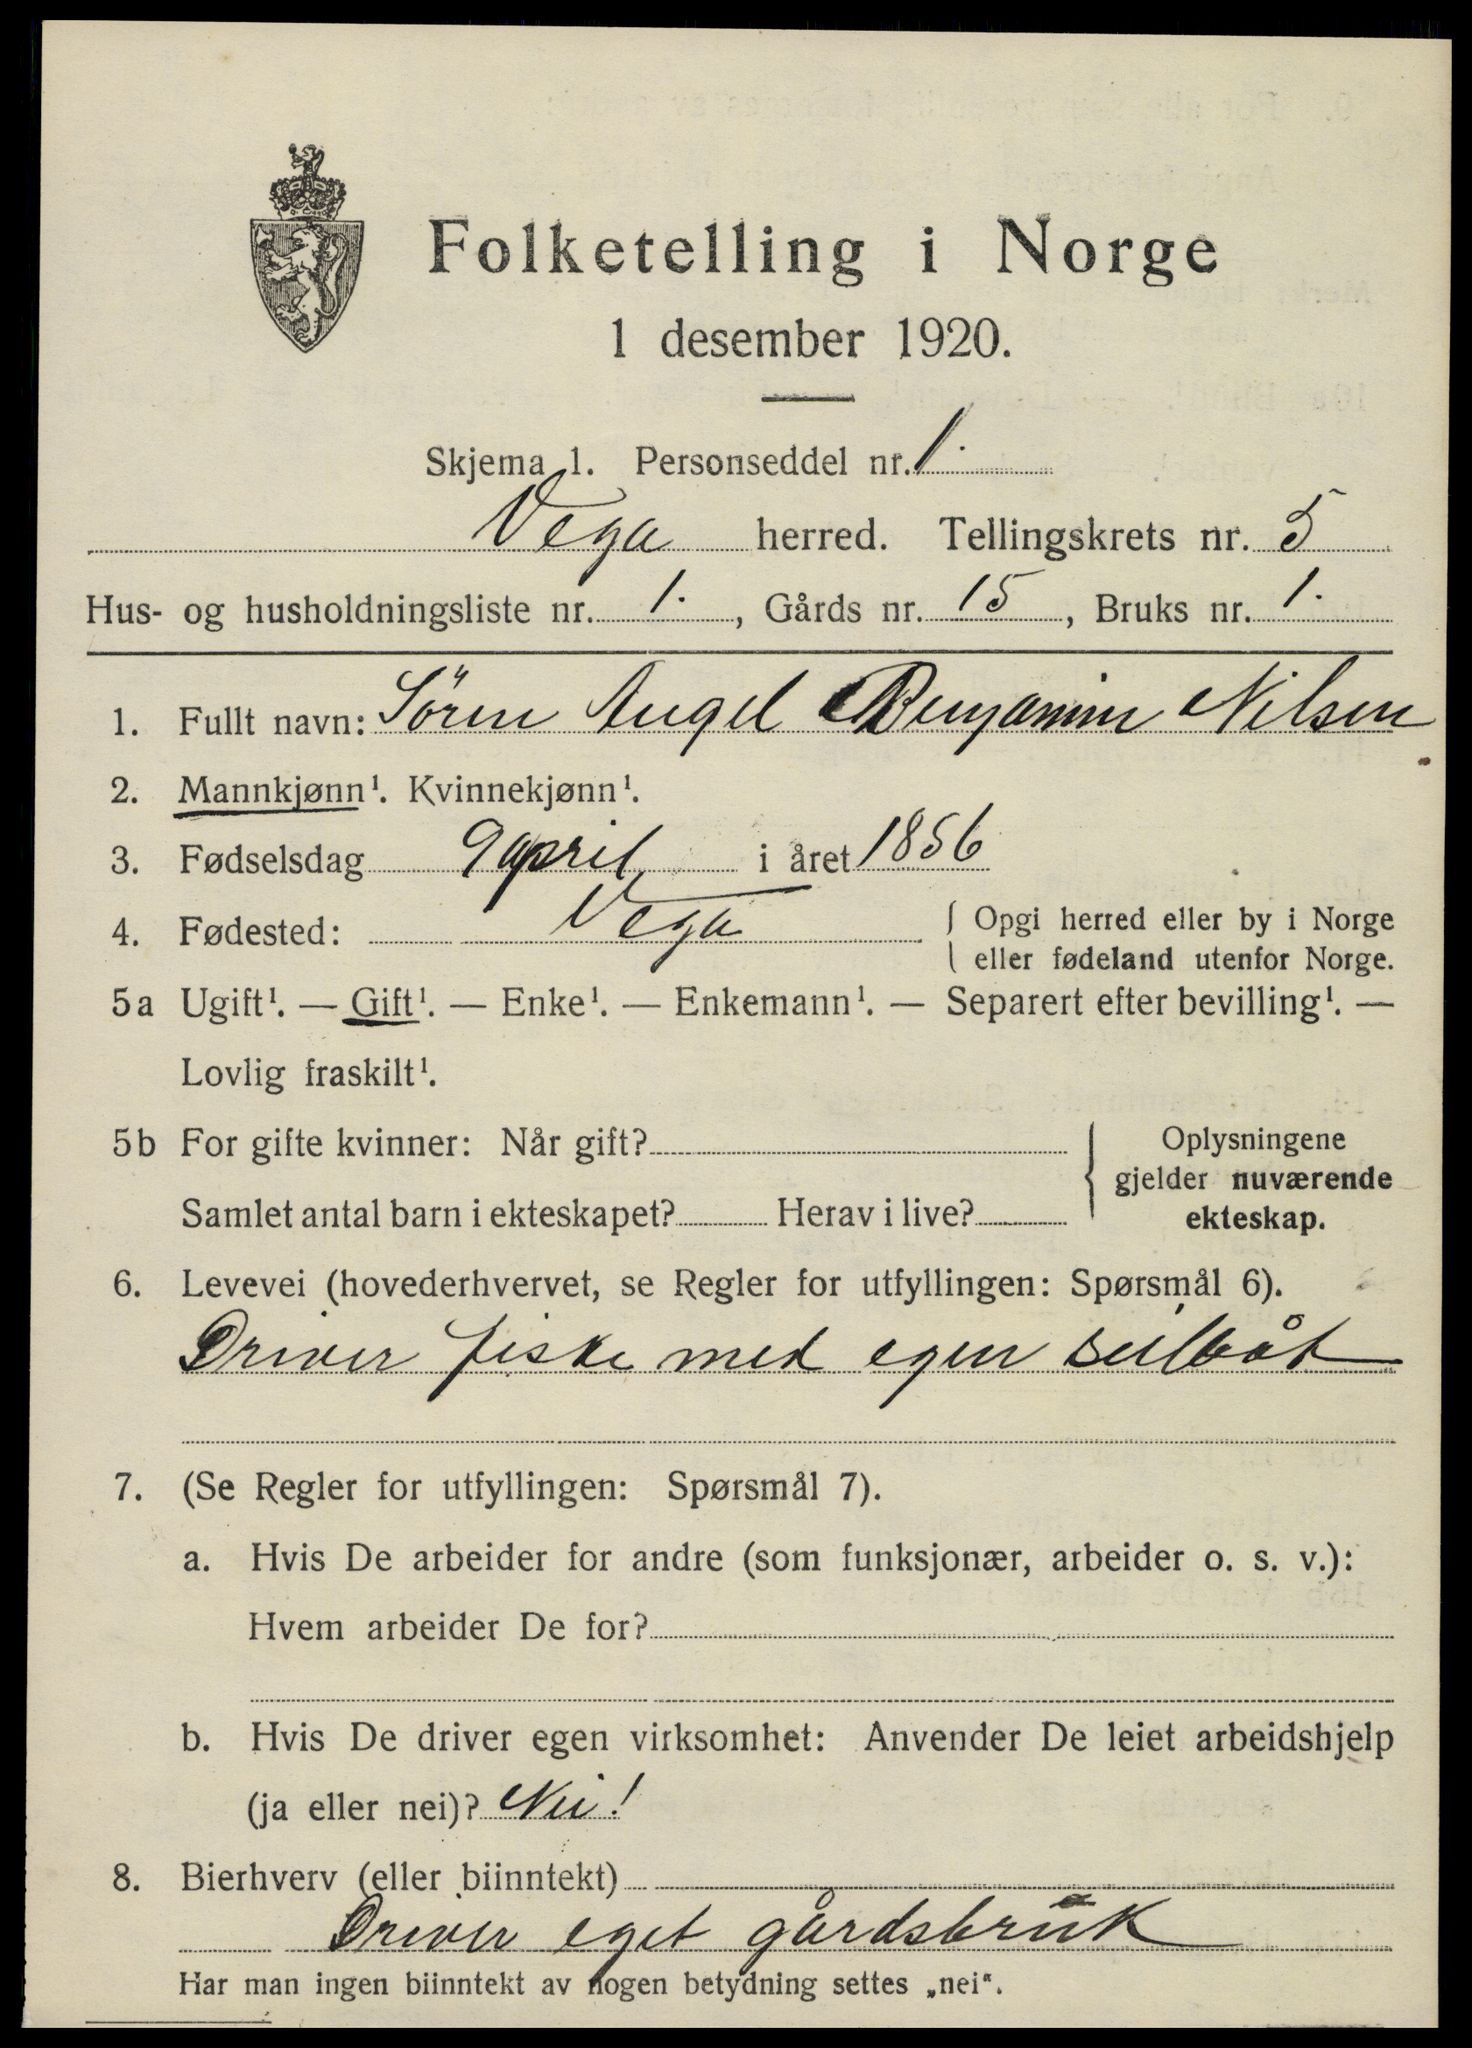 Folketelling i Norge
1 desember 1920.
Skjema 1. Personseddel nr. 1.
Vega herred. Tellingskrets nr. 5
Hus- og husholdningsliste nr. 1. , Gårds nr. 15 , Bruks nr. 1.
1. Fullt navn: Sören Angel Benjamin Nilsen
2. Mannkjønn¹. Kvinnekjønn¹.
3. Fødselsdag 9 april i året 1856
4. Fødested: Vega { Opgi herred eller by i Norge
eller fødeland utenfor Norge.
5a Ugift¹. — Gift¹. — Enke¹. — Enkemann¹. — Separert efter bevilling¹. —
Lovlig fraskilt¹.
5b For gifte kvinner: Når gift?
Samlet antal barn i ekteskapet? Herav i live?
Oplysningene
gjelder nuværende
ekteskap.
6. Levevei (hovederhvervet, se Regler for utfyllingen: Spørsmål 6).
Driver fiske med egen seilbåt
7. (Se Regler for utfyllingen: Spørsmål 7).
a. Hvis De arbeider for andre (som funksjonær, arbeider o. s. v.):
Hvem arbeider De for?
b. Hvis De driver egen virksomhet: Anvender De leiet arbeidshjelp
(ja eller nei)? Nei!
8. Bierhverv (eller biinntekt)
Driver eget gårdsbruk
Har man ingen biinntekt av nogen betydning settes „nei“.